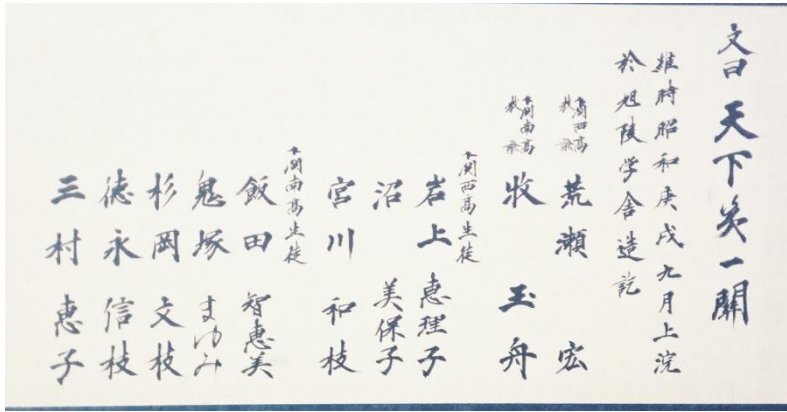 文曰 天下第一關
維時昭和庚戌九月上浣
於旭陵学舎造訖
下関西高教諭 荒瀬 宏
下関南高教諭 牧 玉舟
下関西高生徒
岩上 恵理子
沼 美保子
宮川 和枝
下関南高生徒
飯田 智恵美
鬼塚 まゆみ
杉岡 文枝
徳永 信枝
三村 恵子